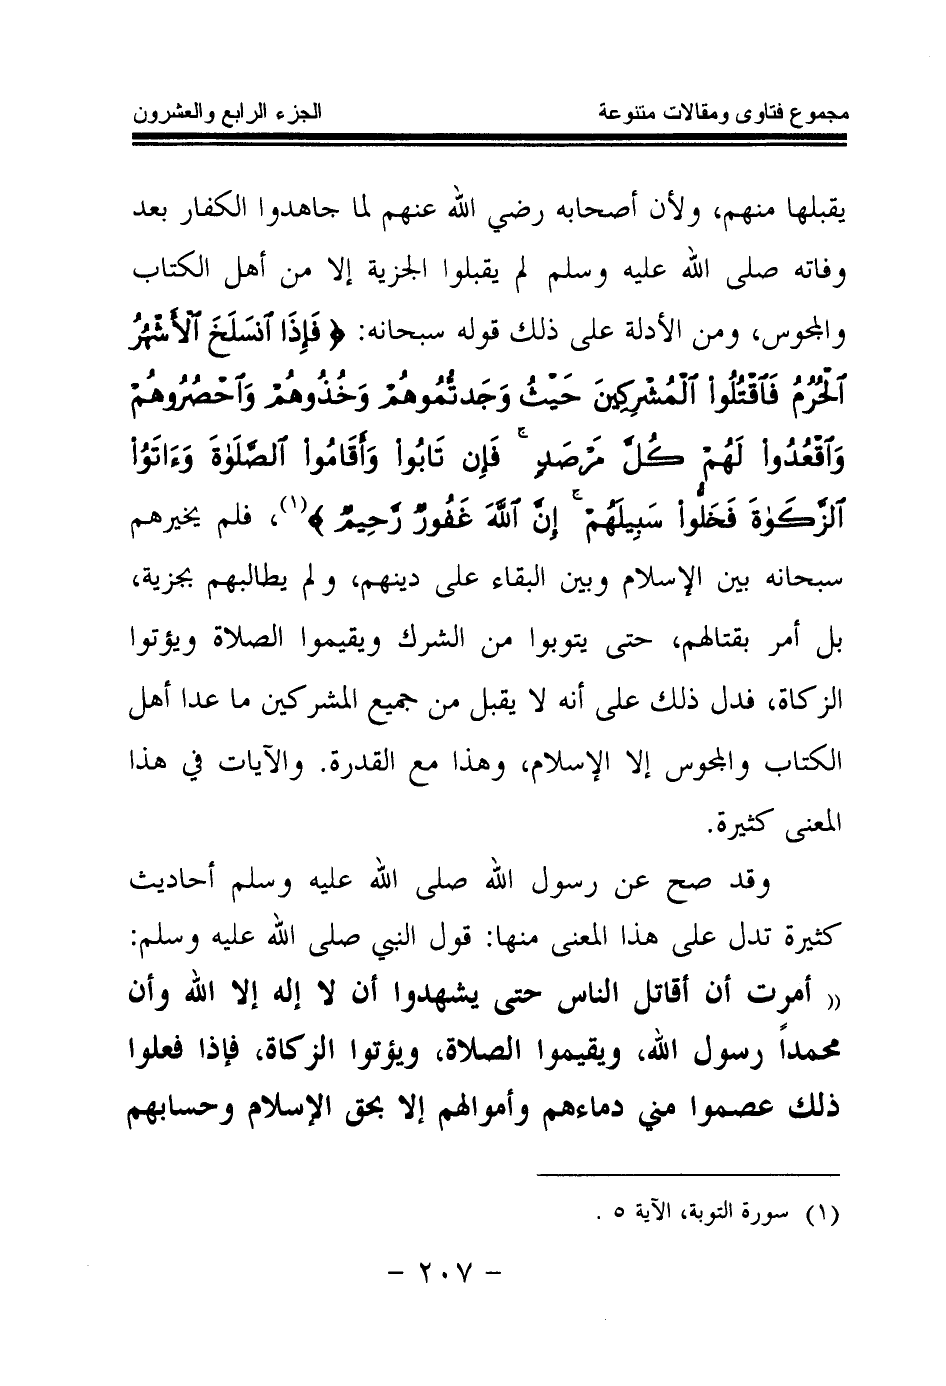 مجموع فتاوى ومقالات متنوعة الجزء الرابع والعشرون
يقبلها منهم، ولأن أصحابه رضي الله عنهم لما جاهدوا الكفار بعد
وفاته صلى الله عليه وسلم لم يقبلوا الجزية إلا من أهل الكتاب
والمجوس، ومن الأدلة على ذلك قوله سبحانه: ﴿ فَإِذَا ٱنسَلَخَ ٱلْأَشْهُرُ
ٱلْحُرُمُ فَٱقْتُلُوا۟ ٱلْمُشْرِكِينَ حَيْثُ وَجَدتُّمُوهُمْ وَخُذُوهُمْ وَٱحْصُرُوهُمْ
وَٱقْعُدُوا۟ لَهُمْ كُلَّ مَرْصَدٍ ۚ فَإِن تَابُوا۟ وَأَقَامُوا۟ ٱلصَّلَوٰةَ وَءَاتَوُا۟
ٱلزَّكَوٰةَ فَخَلُّوا۟ سَبِيلَهُمْ ۚ إِنَّ ٱللَّهَ غَفُورٌ رَّحِيمٌ ﴾(١)، فلم يخيرهم
سبحانه بين الإسلام وبين البقاء على دينهم، ولم يطالبهم بجزية،
بل أمر بقتالهم، حتى يتوبوا من الشرك ويقيموا الصلاة ويؤتوا
الزكاة، فدل ذلك على أنه لا يقبل من جميع المشركين ما عدا أهل
الكتاب والمجوس إلا الإسلام، وهذا مع القدرة. والآيات في هذا
المعنى كثيرة.
وقد صح عن رسول الله صلى الله عليه وسلم أحاديث
كثيرة تدل على هذا المعنى منها: قول النبي صلى الله عليه وسلم:
(( أمرت أن أقاتل الناس حتى يشهدوا أن لا إله إلا الله وأن
محمداً رسول الله، ويقيموا الصلاة، ويؤتوا الزكاة، فإذا فعلوا
ذلك عصموا مني دماءهم وأموالهم إلا بحق الإسلام وحسابهم
(١) سورة التوبة، الآية ٥ .
- ٢٠٧ -